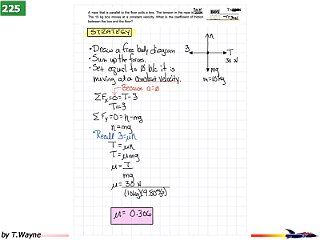 225
A rope that is parallel to the floor pulls a box. The tension in the rope is
The 10 kg box moves at a constant velocity. What is the coefficient of friction
between the box and the floor?
STRATEGY
• Draw a free body diagram
• Sum up the forces.
• Set equal to Ø b/c it is
moving at a constant velocity.
Because a=0
n
T
30 N
mg
m=10 kg
ΣFx=0=T-ℑ
T=ℑ
ΣFy=0=n-mg
n=mg
• Recall ℑ=μn
T=μn
T=μmg
μ=T/mg
μ=30 N/(10kg)(9.80m/s²)
μ=0.306
by T.Wayne